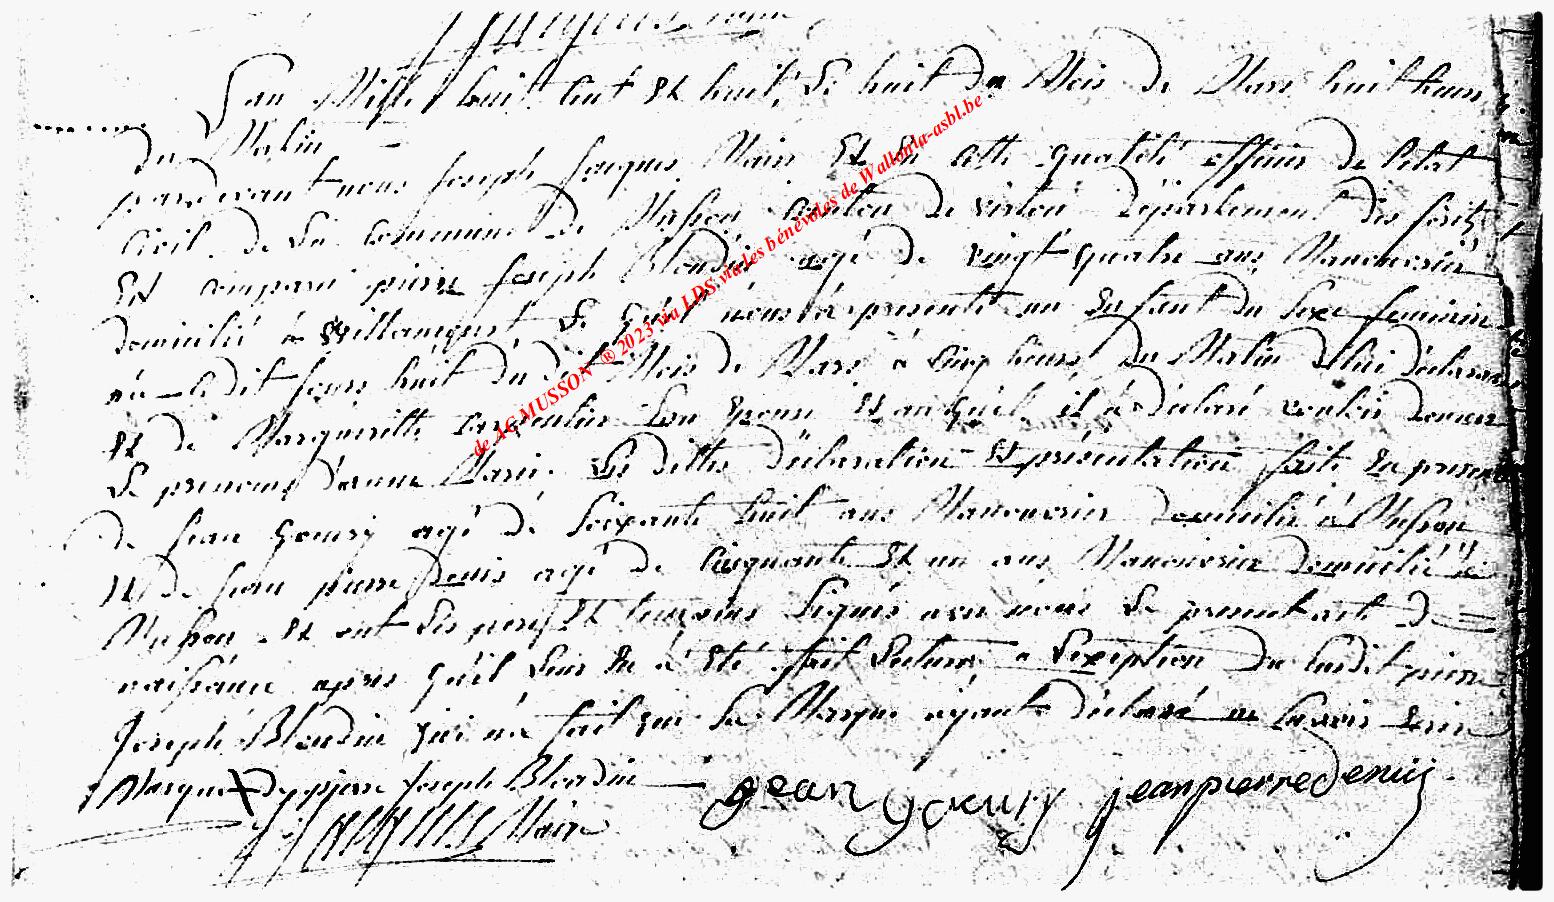 L'an Mille huit Cent Et huit, Le huit du Mois de Mars huit heures
du Matin
pardevant nous Joseph Jacques Maire Et En Cette qualité officier de L'etat
Civil de La Commune de Musson Canton de virton département des forêts
Est comparu pierre Joseph Blondin agé de vingt quatre ans Manouvrier
domicilié à Willancourt Le quel nous a présenté un Enfant du Sexe feminin
née le dit jours huit du dit Mois de Mars à Cinq heures du Matin de lui déclarant
Et de Margueritte Son Epouse Et auquel il a déclaré vouloir donner
Le prenoms d'anne Marie. Les dittes déclaration Et présentation faite En présence
de Jean goury agé de Soixante huit ans Manouvrier domicilié à Musson
Et de Jean pierre denis agé de Cinquante Et un ans Manouvrier domicilié à
Musson Et ont Les pere Et temoins Signés avec nous Le present acte de
naissance apres qu'il Leur En a Eté fait Lecture, a L'exeption du Ledit pierre
Joseph Blondin qui n'a fait que Sa Marque ayant déclaré ne Savoir Ecrire
Marque X De pierre Joseph Blondin jean goury jeanpierredenis
Maire
de AC MUSSON ® 2023 via LDS via les bénévoles de Wallonia-asbl.be